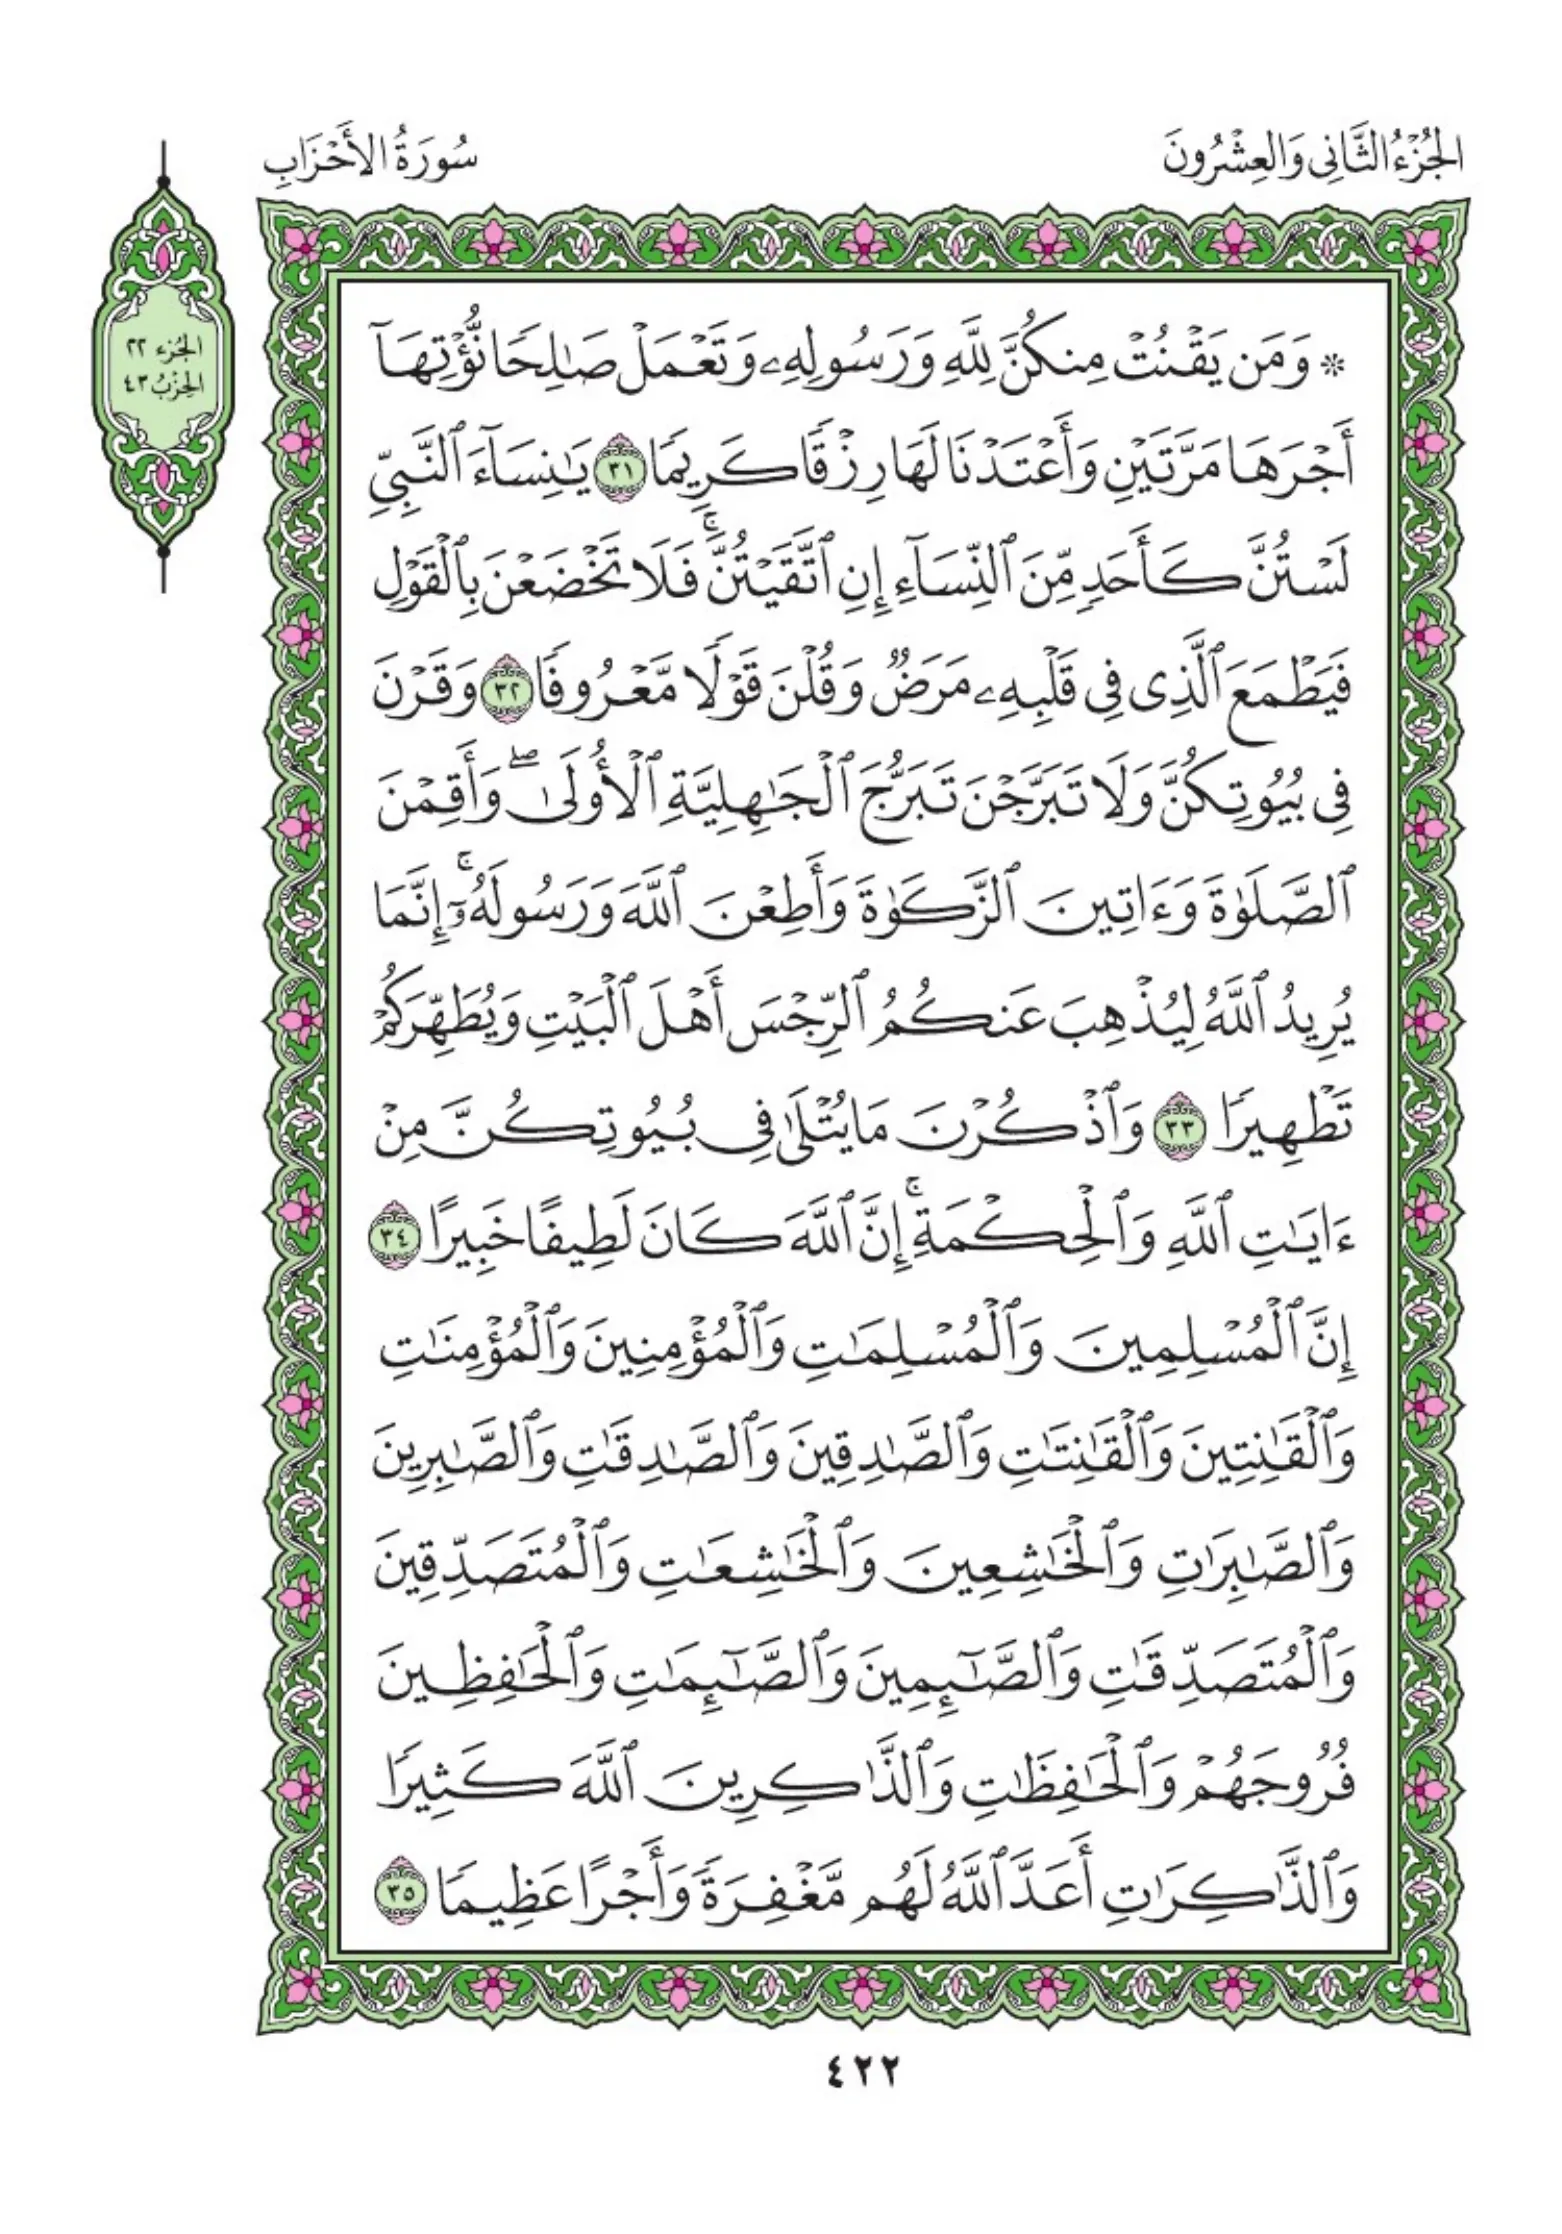 الجُزْءُ الثَّانِي وَالعِشْرُونَ
سُورَةُ الأَحْزَابِ
الجُزْء ٢٢
الحِزْبُ ٤٣
۞ وَمَن يَقْنُتْ مِنكُنَّ لِلَّهِ وَرَسُولِهِۦ وَتَعْمَلْ صَٰلِحًا نُّؤْتِهَآ
أَجْرَهَا مَرَّتَيْنِ وَأَعْتَدْنَا لَهَا رِزْقًا كَرِيمًا ٣١ يَٰنِسَآءَ ٱلنَّبِيِّ
لَسْتُنَّ كَأَحَدٍ مِّنَ ٱلنِّسَآءِ إِنِ ٱتَّقَيْتُنَّۚ فَلَا تَخْضَعْنَ بِٱلْقَوْلِ
فَيَطْمَعَ ٱلَّذِى فِى قَلْبِهِۦ مَرَضٌ وَقُلْنَ قَوْلًا مَّعْرُوفًا ٣٢ وَقَرْنَ
فِى بُيُوتِكُنَّ وَلَا تَبَرَّجْنَ تَبَرُّجَ ٱلْجَٰهِلِيَّةِ ٱلْأُولَىٰۖ وَأَقِمْنَ
ٱلصَّلَوٰةَ وَءَاتِينَ ٱلزَّكَوٰةَ وَأَطِعْنَ ٱللَّهَ وَرَسُولَهُۥٓۚ إِنَّمَا
يُرِيدُ ٱللَّهُ لِيُذْهِبَ عَنكُمُ ٱلرِّجْسَ أَهْلَ ٱلْبَيْتِ وَيُطَهِّرَكُمْ
تَطْهِيرًا ٣٣ وَٱذْكُرْنَ مَا يُتْلَىٰ فِى بُيُوتِكُنَّ مِنْ
ءَايَٰتِ ٱللَّهِ وَٱلْحِكْمَةِۚ إِنَّ ٱللَّهَ كَانَ لَطِيفًا خَبِيرًا ٣٤
إِنَّ ٱلْمُسْلِمِينَ وَٱلْمُسْلِمَٰتِ وَٱلْمُؤْمِنِينَ وَٱلْمُؤْمِنَٰتِ
وَٱلْقَٰنِتِينَ وَٱلْقَٰنِتَٰتِ وَٱلصَّٰدِقِينَ وَٱلصَّٰدِقَٰتِ وَٱلصَّٰبِرِينَ
وَٱلصَّٰبِرَٰتِ وَٱلْخَٰشِعِينَ وَٱلْخَٰشِعَٰتِ وَٱلْمُتَصَدِّقِينَ
وَٱلْمُتَصَدِّقَٰتِ وَٱلصَّٰٓئِمِينَ وَٱلصَّٰٓئِمَٰتِ وَٱلْحَٰفِظِينَ
فُرُوجَهُمْ وَٱلْحَٰفِظَٰتِ وَٱلذَّٰكِرِينَ ٱللَّهَ كَثِيرًا
وَٱلذَّٰكِرَٰتِ أَعَدَّ ٱللَّهُ لَهُم مَّغْفِرَةً وَأَجْرًا عَظِيمًا ٣٥
٤٢٢